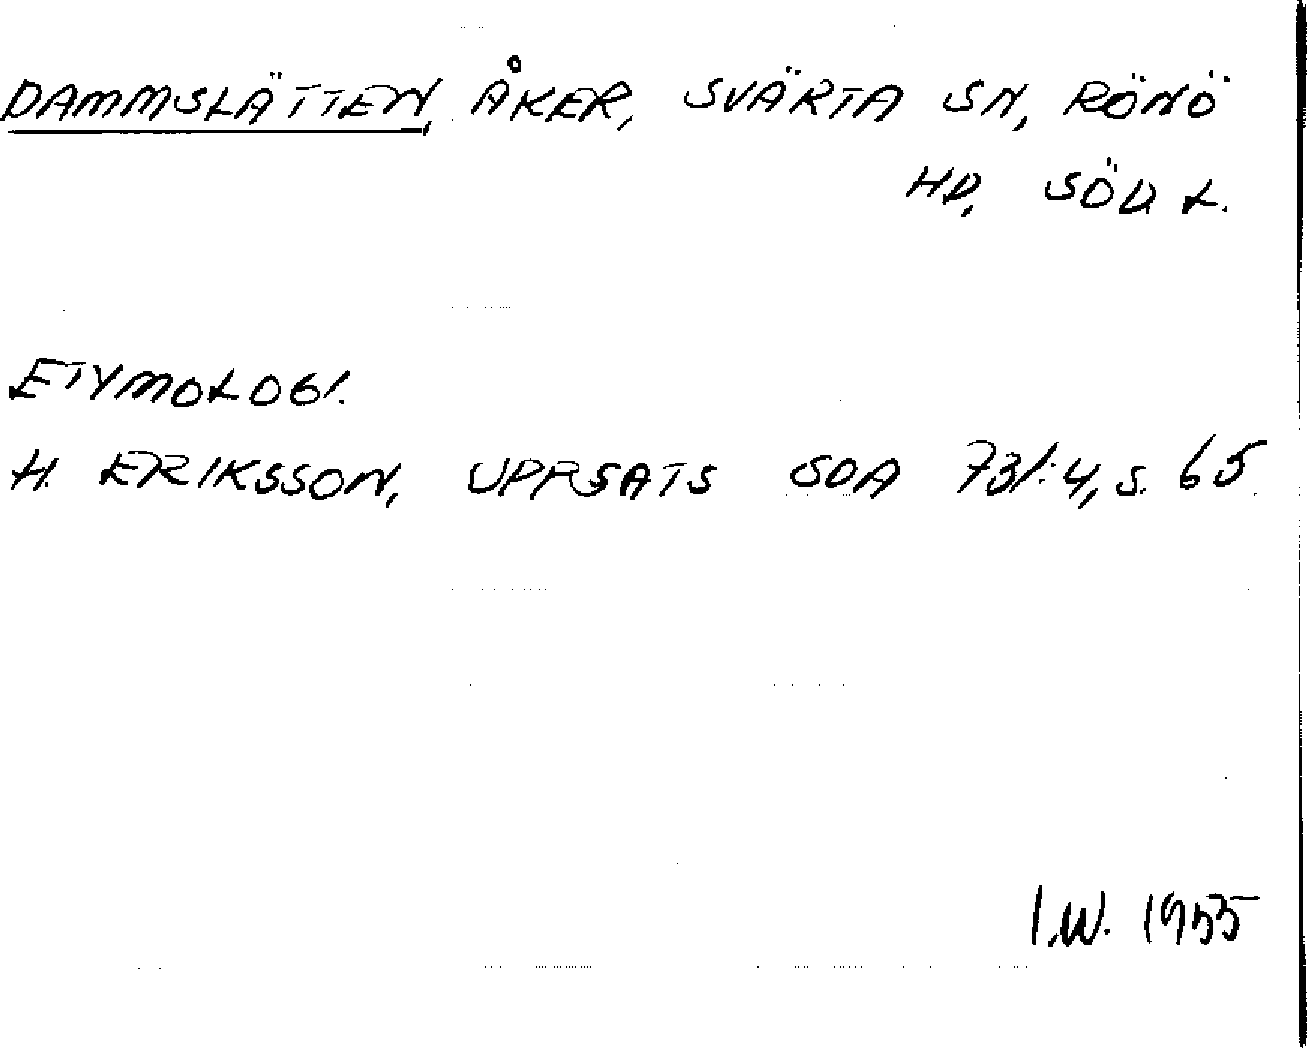 DAMMSLÄTTEN, ÅKER, SVÄRTA SN, RÖNÖ
HD, SÖDL.
ETYMOLOGI.
H. ERIKSSON, UPPSATS SOA 73/:4, S. 65.
I.W. 1955